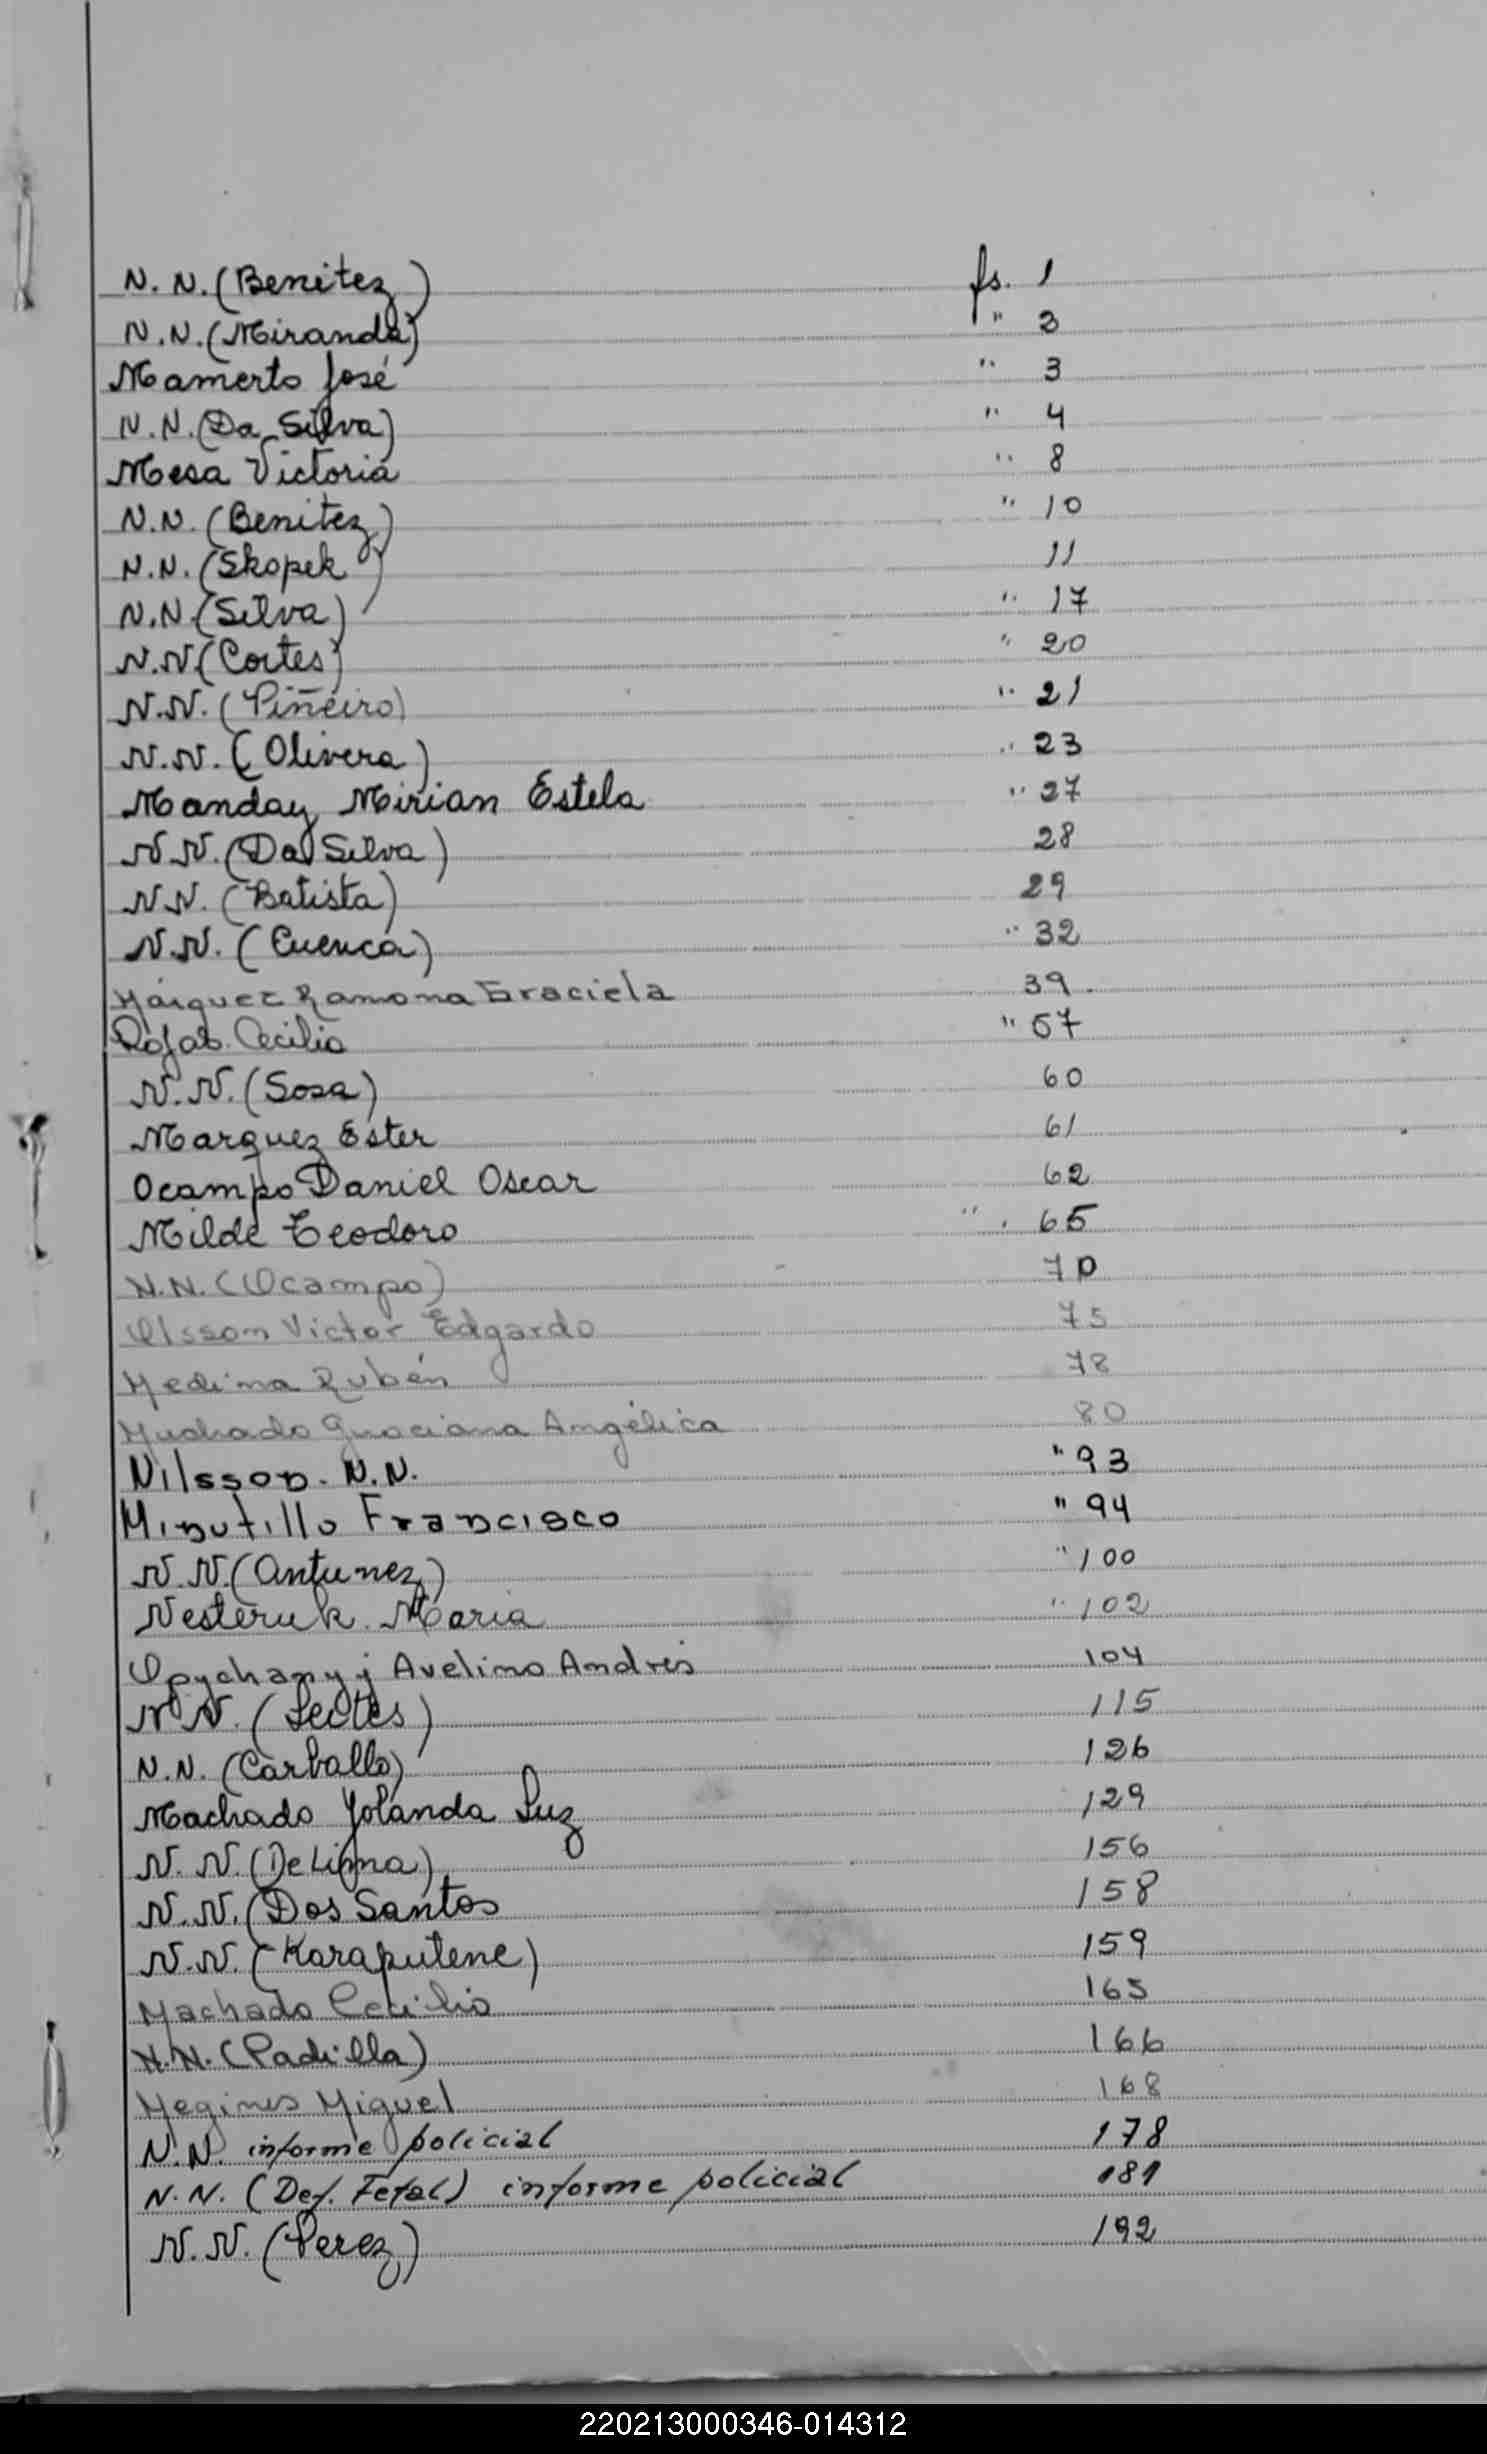 N. N. (Benitez) fs. 1
N. N. (Miranda) " 3
Mamerto José " 3
N. N. (Da Silva) " 4
Mesa Victoria " 8
N. N. (Benitez) " 10
N. N. (Skopek) 11
N. N. (Silva) " 17
N. N. (Cortes) " 20
N. N. (Piñeiro) " 21
N. N. (Olivera) " 23
Manday Mirian Estela " 27
N. N. (Da Silva) 28
N. N. (Batista) 29
N. N. (Cuenca) " 32
Márquez Ramona Graciela 39
Rojas Cecilio " 57
N. N. (Sosa) 60
Marquez Ester 61
Ocampo Daniel Oscar 62
Milde Teodoro " 65
N. N. (Ocampo) 70
Olsson Victor Edgardo 75
Medina Rubén 78
Machado Graciana Angélica 80
Nilsson. N. N. " 93
Minutillo Francisco " 94
N. N. (Antunez) " 100
Nesteruk Maria " 102
Opychanyj Avelino Andrés 104
N. N. 115
N. N. (Carballo) 126
Machado Yolanda Luz 129
N. N. (De Lima) 156
N. N. (Dos Santos 158
N. N. (Karaputene) 159
Machado Cecilio 165
N. N. (Padilla) 166
Megines Miguel 168
N. N. informe policial 178
N. N. (Def. Fetal) informe policial 181
N. N. (Perez) 192
220213000346-014312